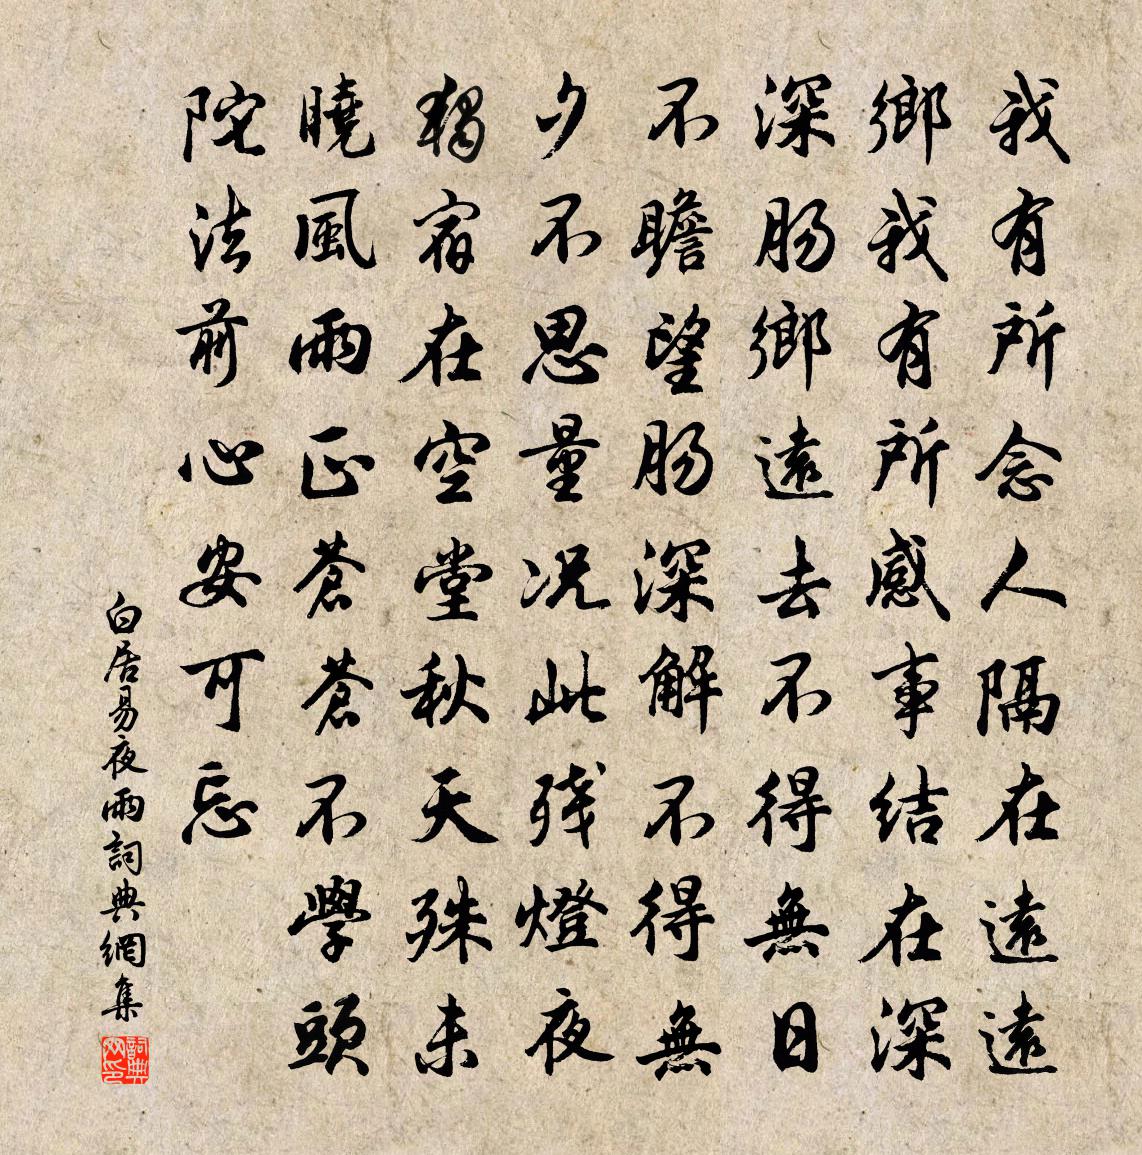 我有所念人隔在遠遠
鄉我有所感事结在深
深肠鄉遠去不得無日
不瞻望肠深解不得無
夕不思量况此残燈夜
獨宿在空堂秋天殊未
曉風雨正蒼蒼不學頭
陀法前心安可忘
白居易夜雨詞典網集
詞典网印